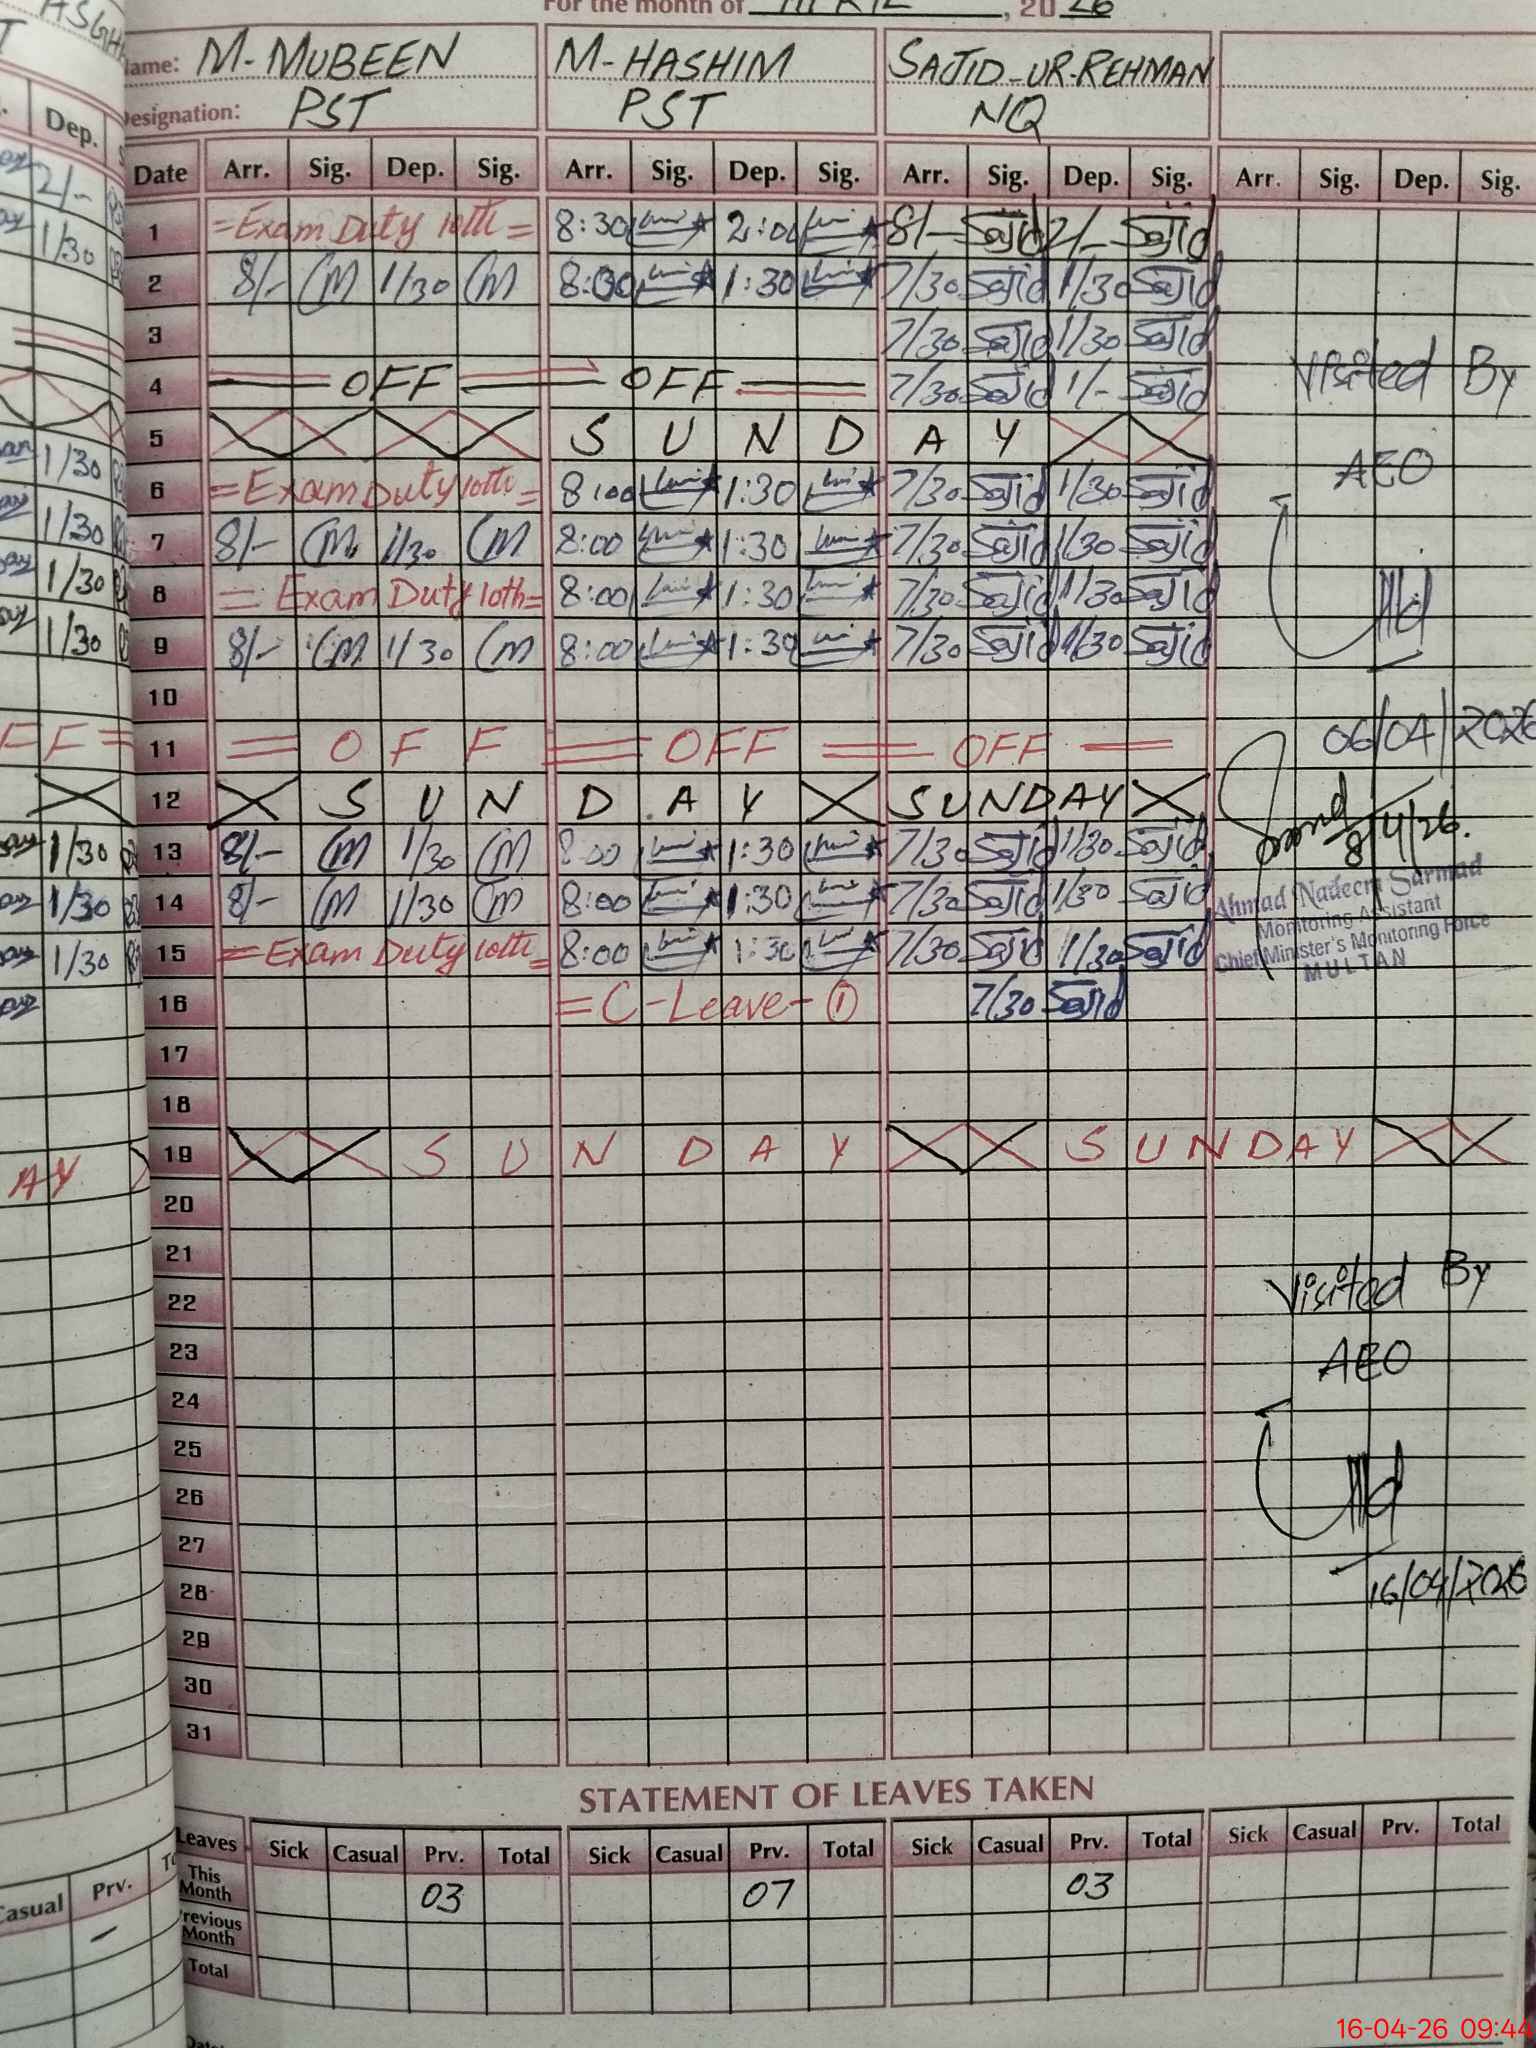 For the month of APRIL, 20 26
Name: M-MUBEEN M-HASHIM SAJJID-UR-REHMAN
Designation: PST PST NQ
Dep.
Date Arr. Sig. Dep. Sig. Arr. Sig. Dep. Sig. Arr. Sig. Dep. Sig. Arr. Sig. Dep. Sig.
2/- 1 =Exam Duty 10th= 8:30 2:00 8/- Sajid 2/- Sajid
1/30 2 8/- CM 1/30 CM 8:30 1:30 7/30 Sajid 1/30 Sajid
3 7/30 Sajid 1/30 Sajid
4 OFF OFF 7/30 Sajid 1/- Sajid
Visited By
5 S U N D A Y
1/30 6 =Exam Duty 10th= 8:00 1:30 7/30 Sajid 1/30 Sajid
AEO
1/30 7 8/- CM 1/30 CM 8:00 1:30 7/30 Sajid 1/30 Sajid
1/30 8 = Exam Duty 10th= 8:00 1:30 7/30 Sajid 1/30 Sajid
1/30 9 8/- CM 1/30 CM 8:00 1:30 7/30 Sajid 1/30 Sajid
10
06/04/2026
FF= 11 = O F F = OFF = OFF =
12 S U N D A Y SUNDAY
8/4/26.
1/30 13 8/- CM 1/30 CM 8:00 1:30 7/30 Sajid 1/30 Sajid
1/30 14 8/- CM 1/30 CM 8:00 1:30 7/30 Sajid 1/30 Sajid
Ahmad Nadeem Sarmad
Monitoring Assistant
Chief Minister's Monitoring Force
MULTAN
1/30 15 =Exam Duty 10th= 8:00 1:30 7/30 Sajid 1/30 Sajid
16 =C-Leave-① 7/30 Sajid
17
18
AY 19 S U N D A Y S U N D A Y
20
21
22
Visited By
23
AEO
24
25
26
27
28
16/04/2026
29
30
31
STATEMENT OF LEAVES TAKEN
Casual Prv.
Leaves Sick Casual Prv. Total Sick Casual Prv. Total Sick Casual Prv. Total Sick Casual Prv. Total
This Month 03 07 03
Previous Month
Total
16-04-26 09:44